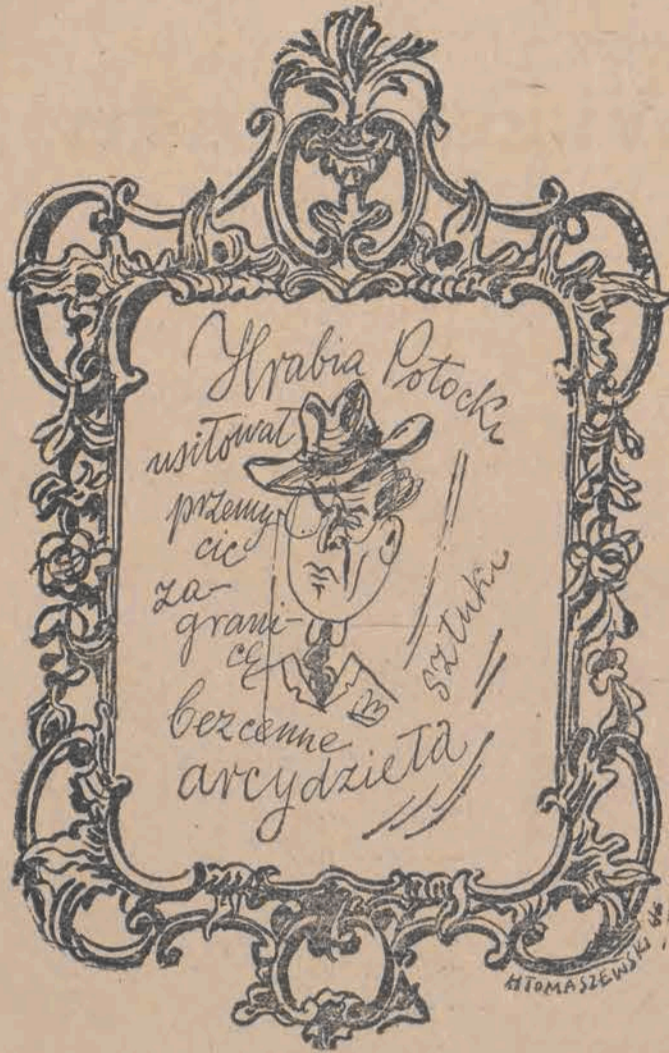 Hrabia Potocki
usiłował
przemy-
cić
za-
grani-
cę
bezcenne
arcydzieła
sztuki
H TOMASZEWSKI